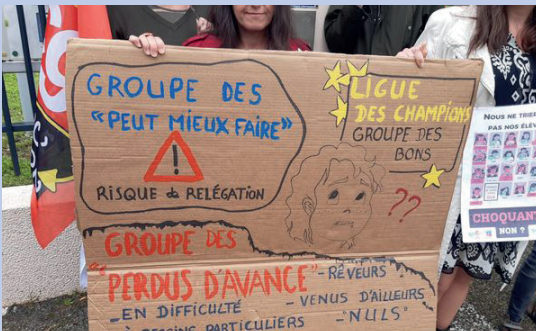 GROUPE DES
"PEUT MIEUX FAIRE"
!
RISQUE de RELÉGATION
LIGUE
DES CHAMPIONS
GROUPE DES
BONS
??
GROUPE DES
"PERDUS D'AVANCE"
- RÊVEURS
- EN DIFFICULTÉ
- VENUS D'AILLEURS
BESOINS PARTICULIERS
- "NULS"
NOUS NE
PAS NOS
CHOQUANT
NON ?